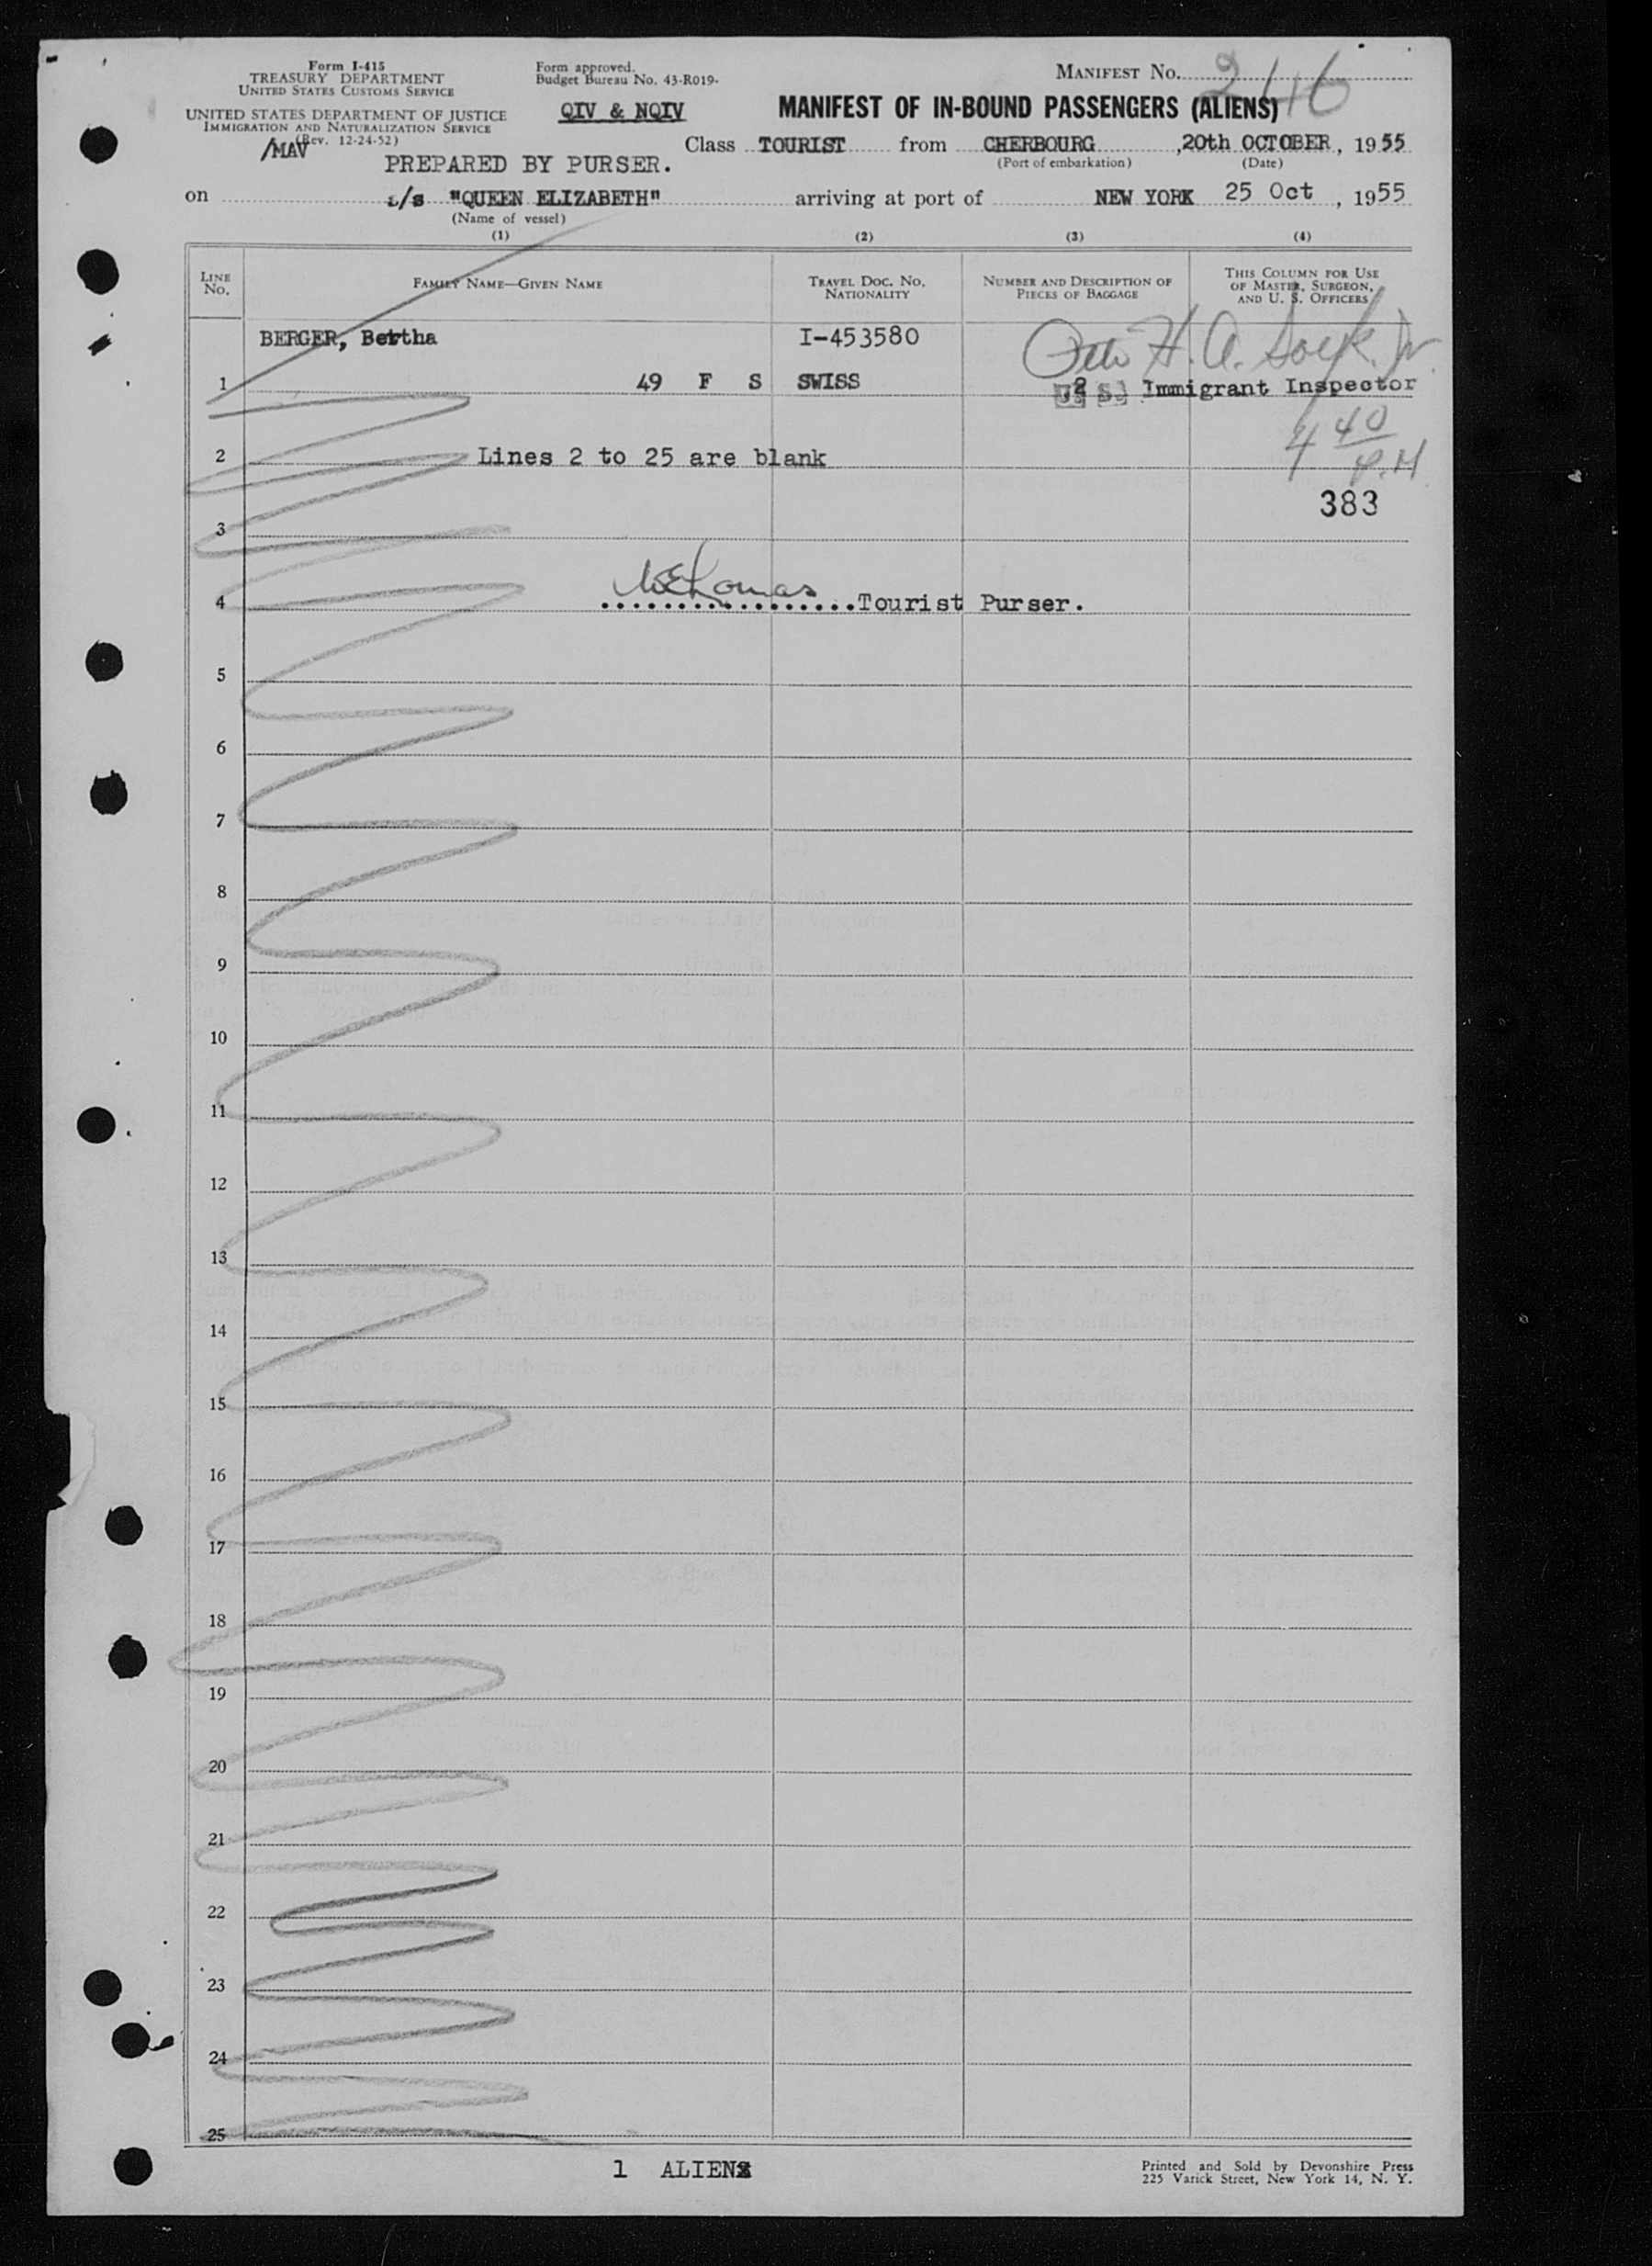 Form I-415
TREASURY DEPARTMENT
UNITED STATES CUSTOMS SERVICE
UNITED STATES DEPARTMENT OF JUSTICE
IMMIGRATION AND NATURALIZATION SERVICE
(Rev. 12-24-52)
/MAV
Form approved.
Budget Bureau No. 43-R019-
QIV & NQIV
MANIFEST NO. 246
MANIFEST OF IN-BOUND PASSENGERS (ALIENS)
Class TOURIST from CHERBOURG, 20th OCTOBER, 1955
(Port of embarkation) (Date)
PREPARED BY PURSER.
on s/s "QUEEN ELIZABETH" arriving at port of NEW YORK 25 Oct, 1955
(Name of vessel)
(1) (2) (3) (4)
LINE NO. FAMILY NAME—GIVEN NAME TRAVEL DOC. NO. NATIONALITY NUMBER AND DESCRIPTION OF PIECES OF BAGGAGE THIS COLUMN FOR USE OF MASTER, SURGEON, AND U. S. OFFICERS
BERGER, Bertha I-453580
1 49 F S SWISS 2 U. S. Immigrant Inspector
4 40 P.M.
2 Lines 2 to 25 are blank
383
3
4 Tourist Purser.
5
6
7
8
9
10
11
12
13
14
15
16
17
18
19
20
21
22
23
24
25
1 ALIEN
Printed and Sold by Devonshire Press
225 Varick Street, New York 14, N. Y.